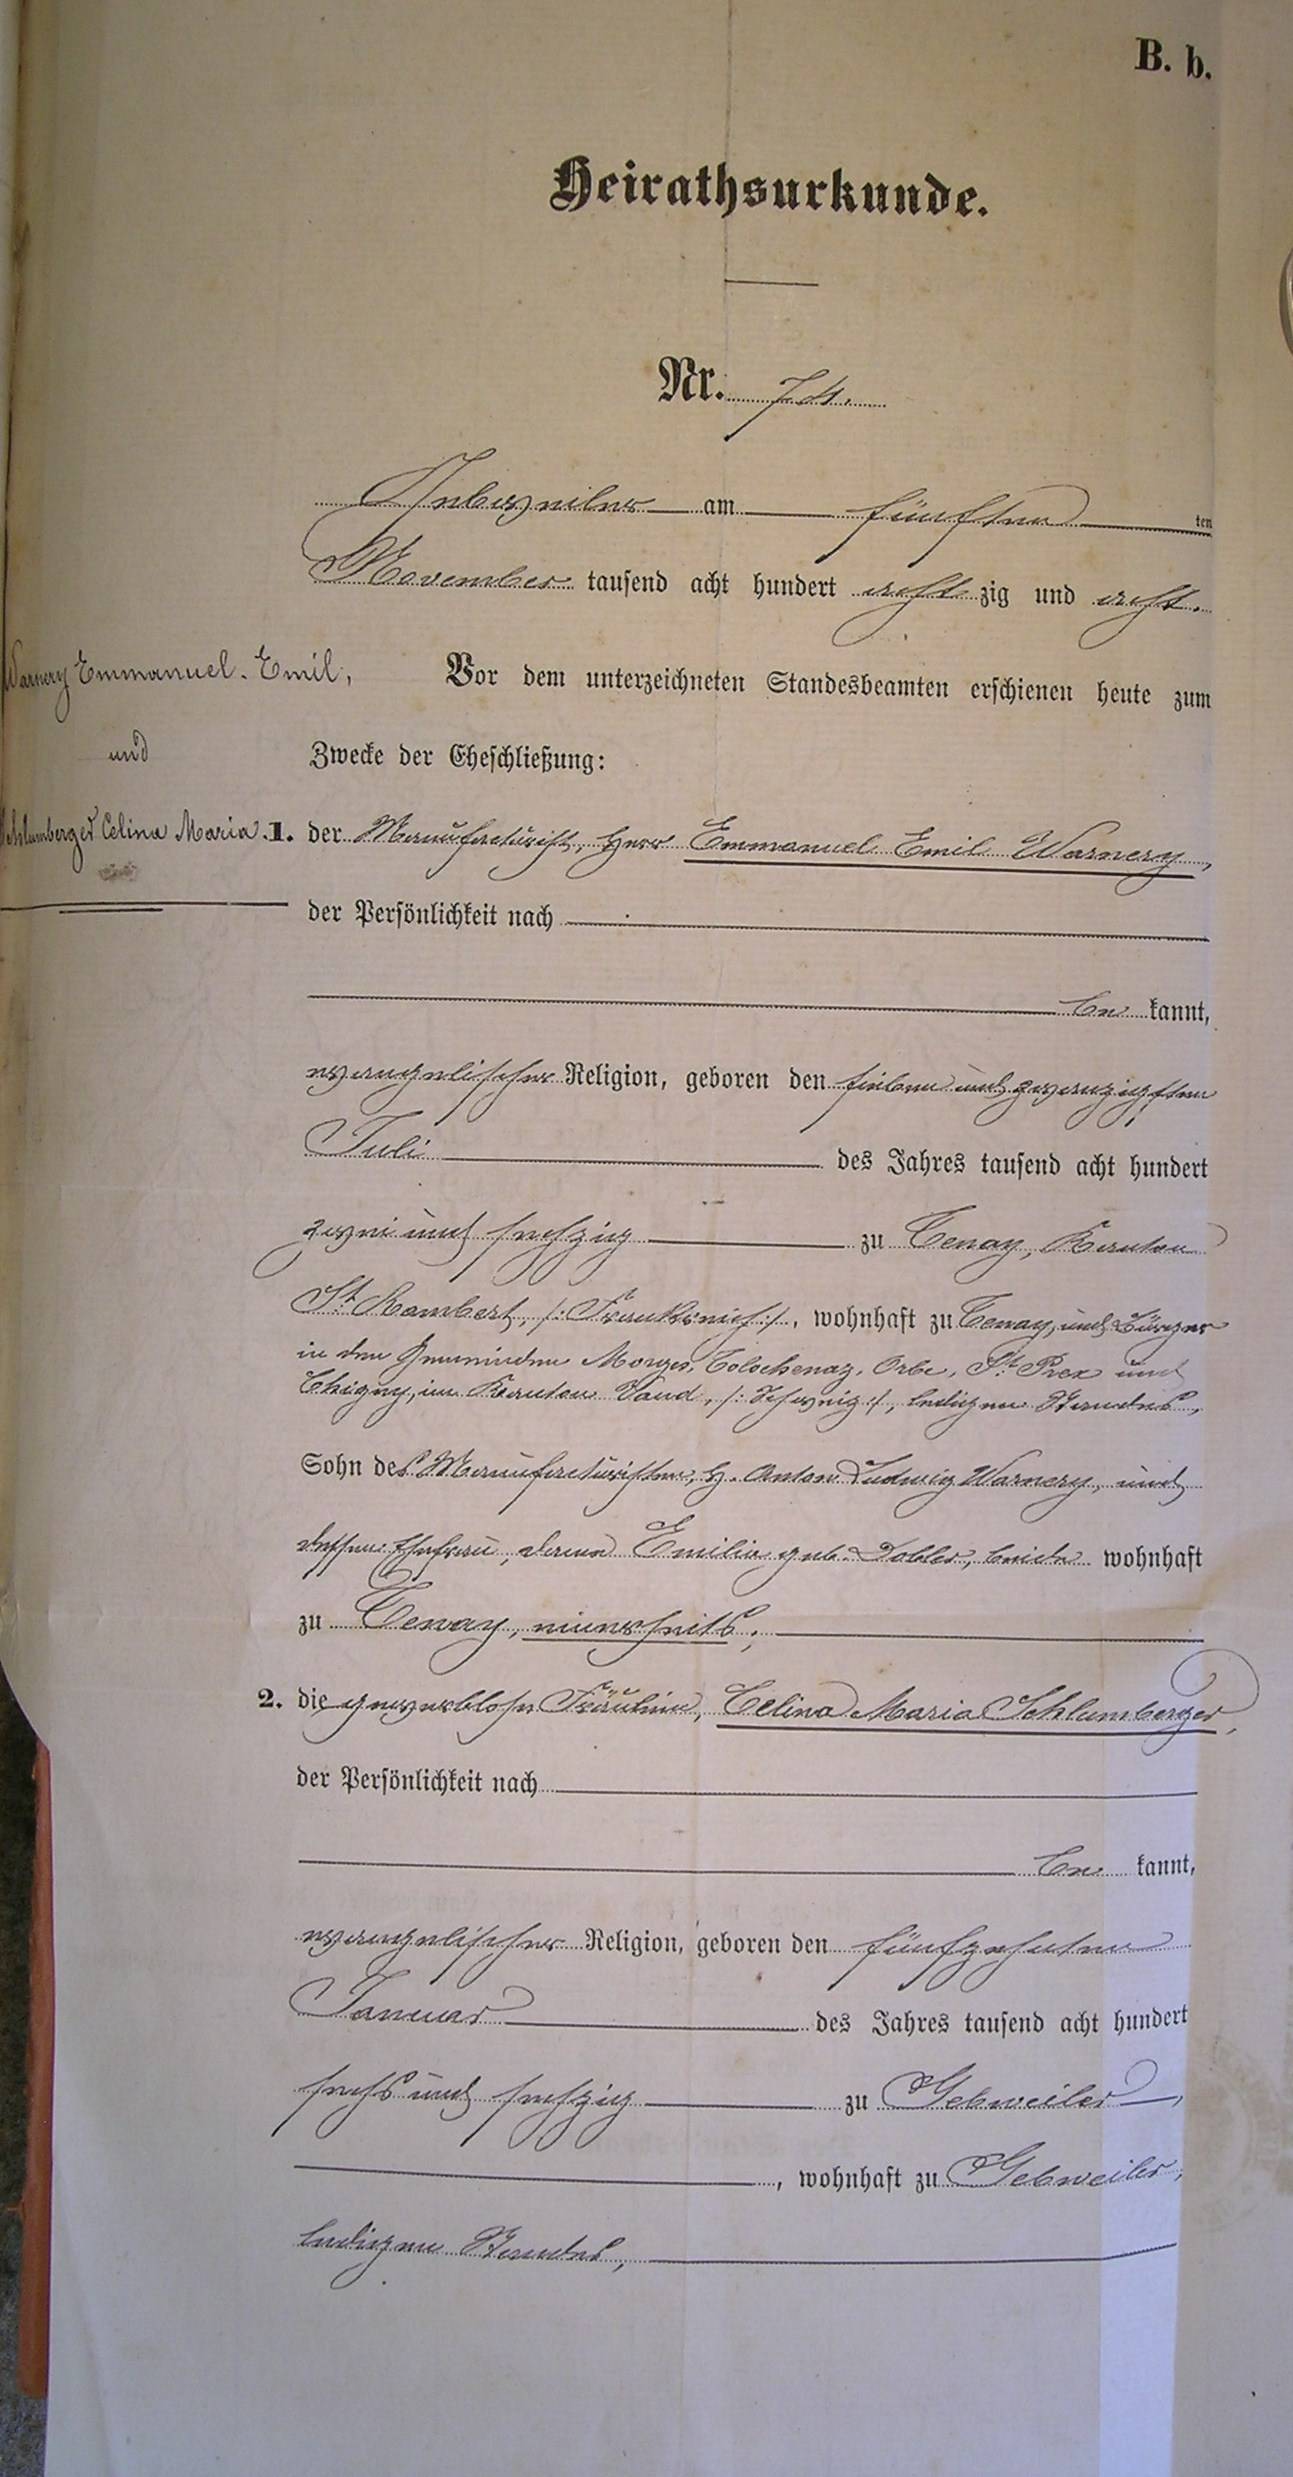 B. b.
Heirathsurkunde.
Nr. 74.
Gebweiler am fünften ten
November tausend acht hundert acht zig und acht.
Warnery Emmanuel Emil,
und
Schlumberger Celina Maria.
Vor dem unterzeichneten Standesbeamten erschienen heute zum
Zwecke der Eheschließung:
1. der Manufacturist, Herr Emmanuel Emil Warnery,
der Persönlichkeit nach
be kannt,
evangelischer Religion, geboren den sieben und zwanzigsten
Juli des Jahres tausend acht hundert
zwei und sechzig zu Tenay, Kanton
St. Rambert, /: Frankreich :/, wohnhaft zu Tenay, und Bürger
in den Gemeinden Morges, Tolochenaz, Orbe, St. Prex und
Chigny, im Kanton Vaud, /: Schweiz :/, ledigen Standes,
Sohn des Manufacturisten, H. Anton Ludwig Warnery, und
dessen Ehefrau, Dame Emilie geb. Dobler, beide wohnhaft
zu Tenay, einerseits;
2. die gewerblose Fräulein, Celina Maria Schlumberger,
der Persönlichkeit nach
be kannt,
evangelischer Religion, geboren den fünfzehnten
Januar des Jahres tausend acht hundert
sechs und sechzig zu Gebweiler,
, wohnhaft zu Gebweiler,
ledigen Standes,